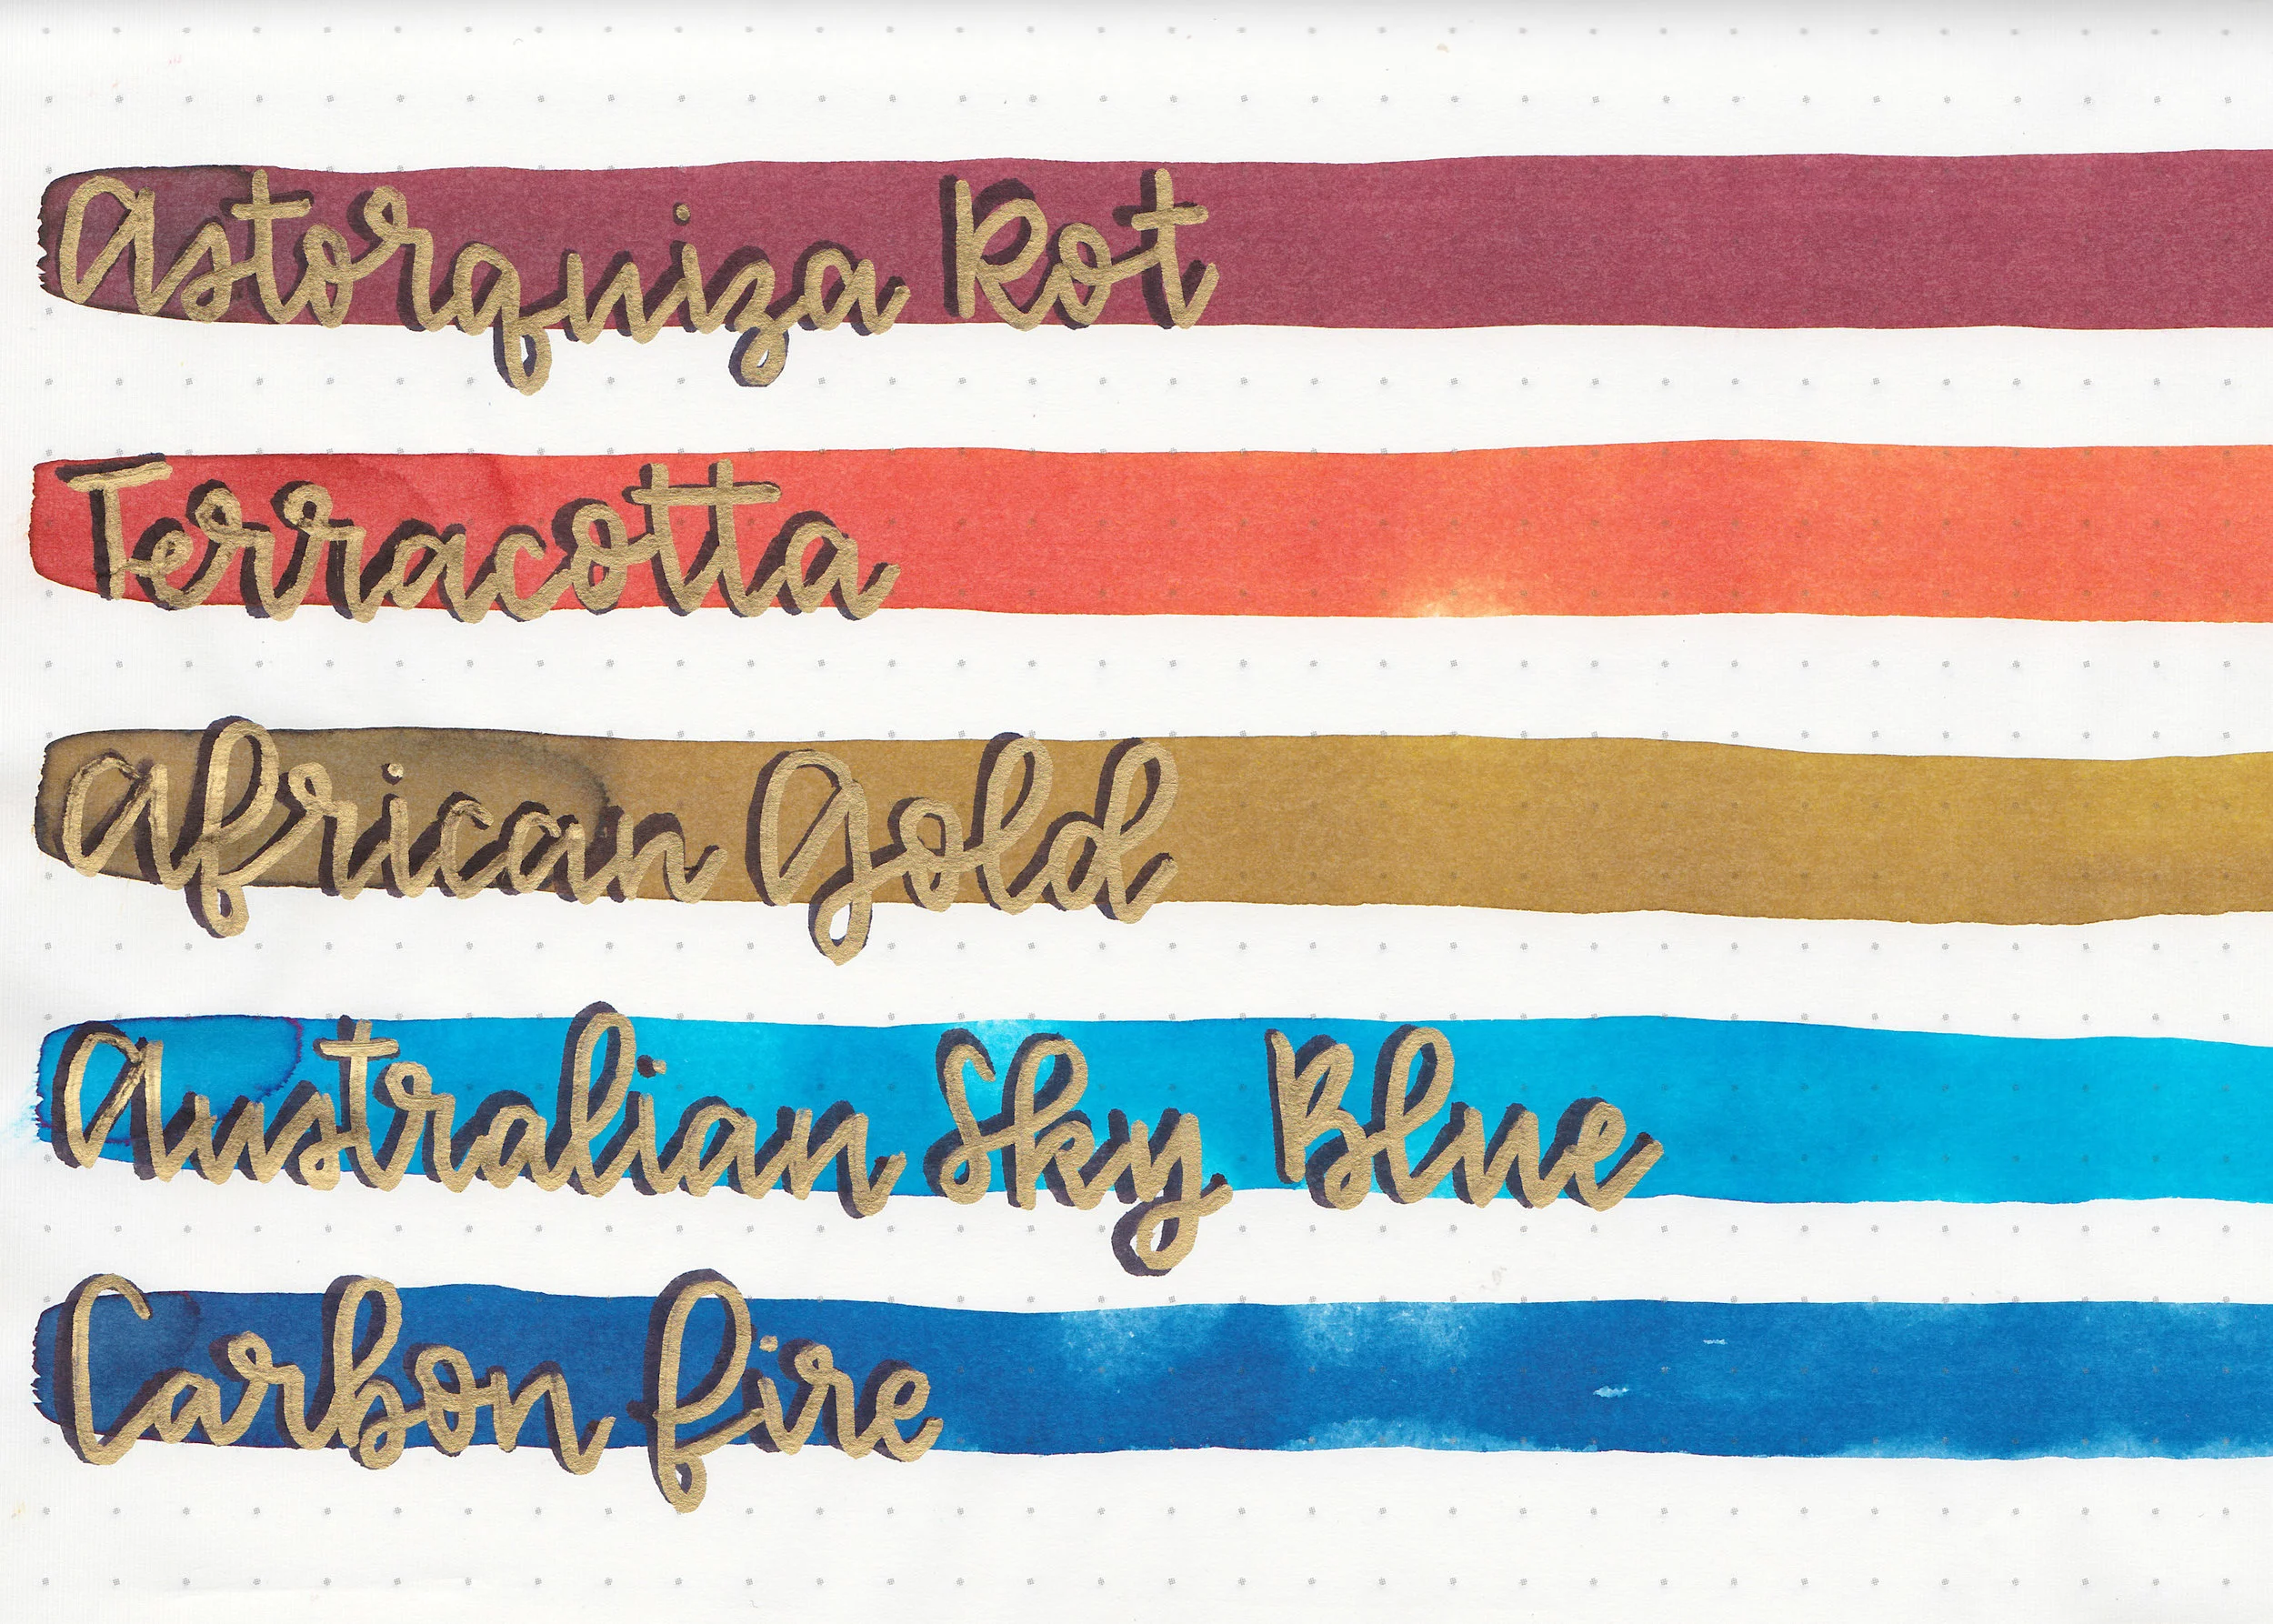 Astorquiza Rot
Terracotta
African Gold
Australian Sky Blue
Carbon Fire